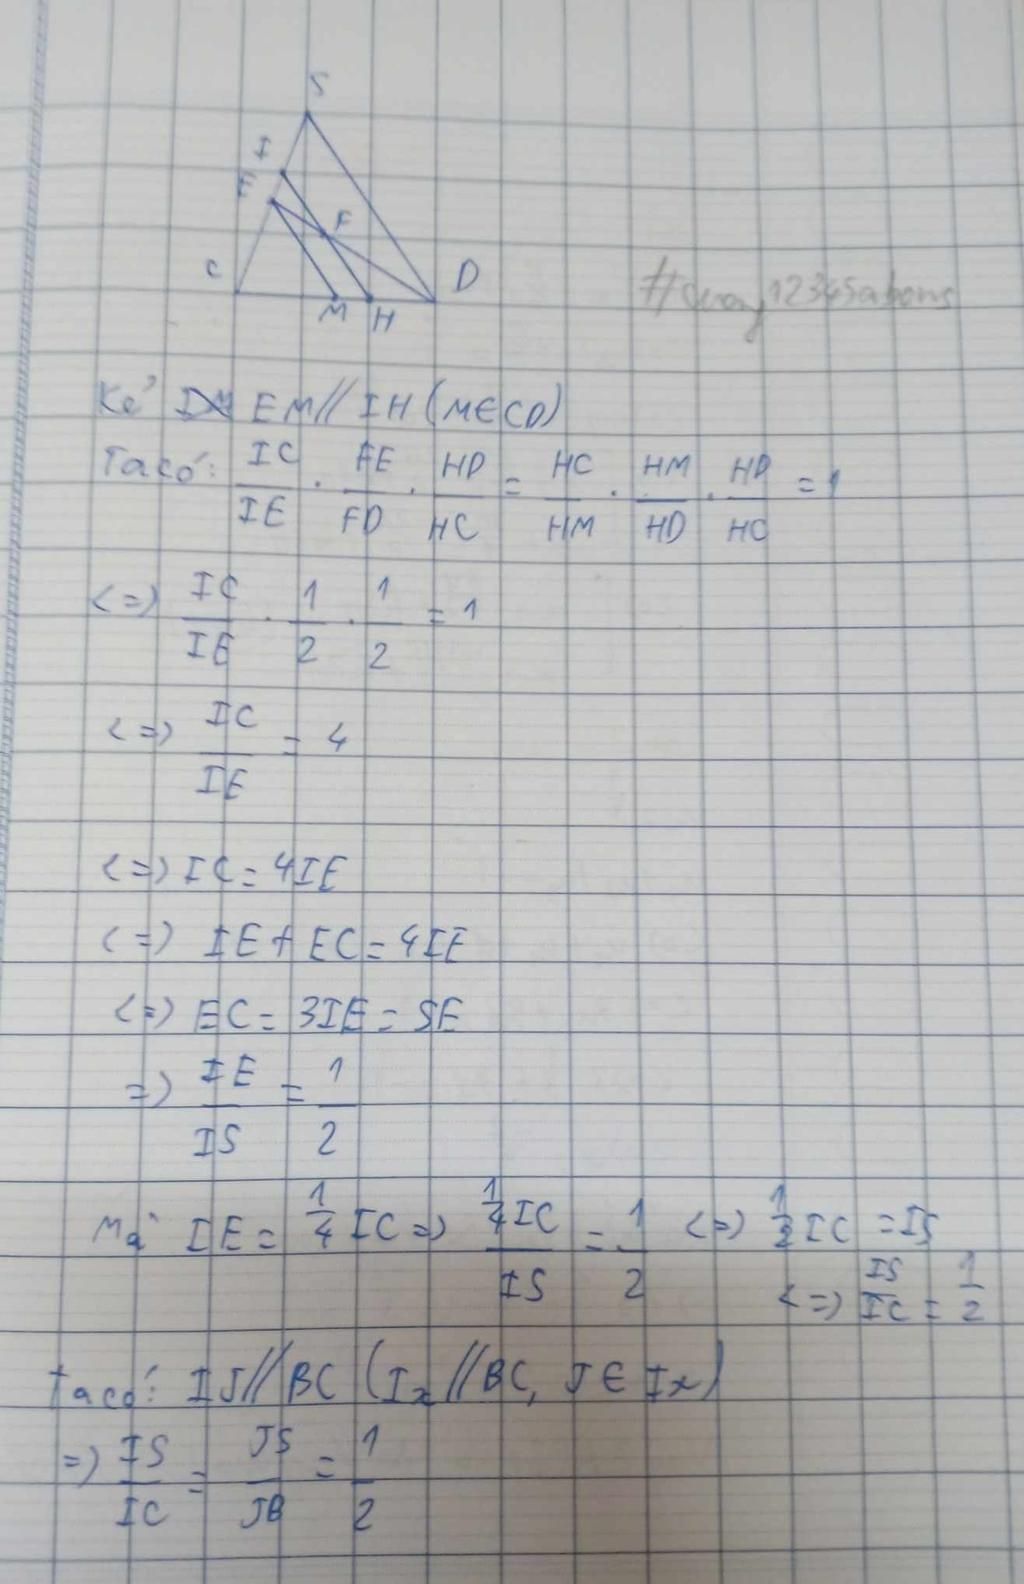 S
I
E
F
C
D
M H
Kẻ EM // IH (M∈CD)
Ta có: IC/IE . FE/FD . HD/HC = HC/HM . HM/HD . HD/HC = 1
<=> IC/IE . 1/2 . 1/2 = 1
<=> IC/IE = 4
<=> IC = 4IE
<=> IE + EC = 4IE
<=> EC = 3IE = SE
=> IE/IS = 1/2
Mà IE = 1/4 IC => 1/4 IC/IS = 1/2 <=> 1/2 IC = IS
<=> IS/IC = 1/2
Ta có: IJ // BC (Ix // BC, J ∈ Ix)
=> IS/IC = JS/JB = 1/2